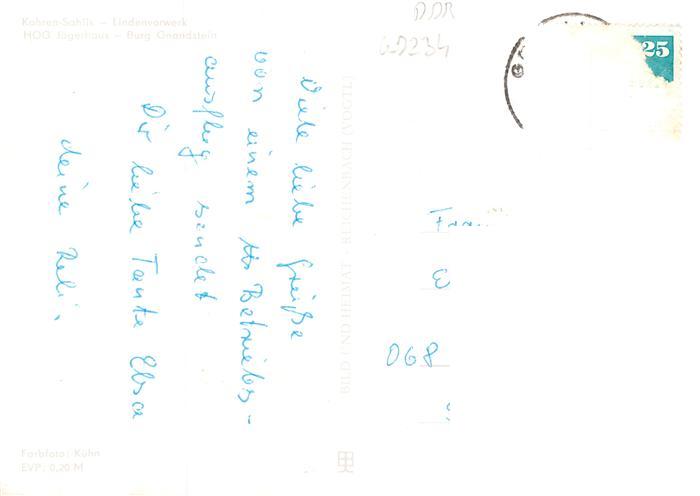 Kohren-Sahlis – Lindenvorwerk
HOG Jägerhaus – Burg Gnandstein
Viele liebe Grüße
von einem Betriebs-
ausflug sendet
Dir liebe Tante Elsa
deine
BILD UND HEIMAT · REICHENBACH (VOGTL)
Farbfoto: Kühn
EVP: 0,20 M
DDR
25
Frau
068